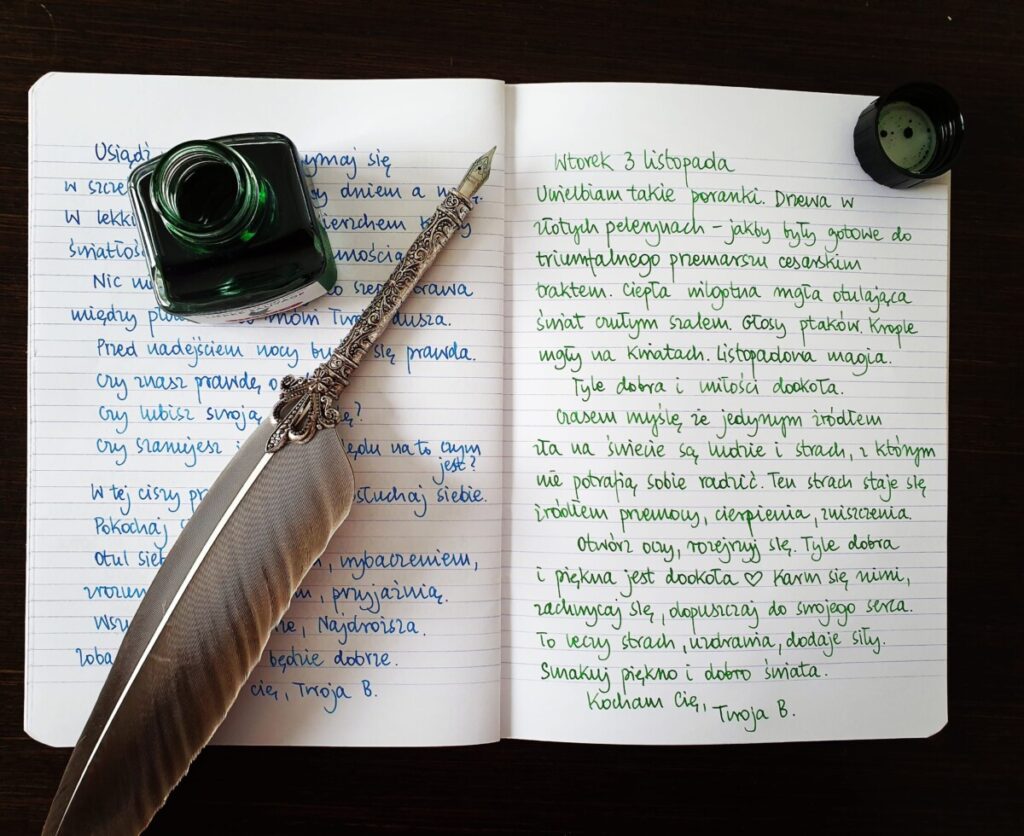 Usiądź ymaj się
w szcze y dniem a n
W lekki ierzchem
światłoś mnością
Nic szep
między mówi Twoja dusza.
Przed nadejściem nocy się prawda.
Czy znasz prawdę o
Czy lubisz swoją ę?
Czy szanujesz ględu na to czym
jest?
W tej ciszy pr osłuchaj siebie.
Pokochaj
Otul sieb , wybaczeniem,
zrozum , przyjaźnią.
Wsz , Najdroższa.
zoba będzie dobrze.
cię, Twoja B.
Wtorek 3 listopada
Uwielbiam takie poranki. Drzewa w
złotych pelerynach – jakby były gotowe do
triumfalnego przemarszu cesarskim
traktem. Ciepła wilgotna mgła otulająca
świat czułym szalem. Głosy ptaków. Krople
mgły na kwiatach. Listopadowa magia.
Tyle dobra i miłości dookoła.
Czasem myślę że jedynym źródłem
zła na świecie są ludzie i strach, z którym
nie potrafią sobie radzić. Ten strach staje się
źródłem przemocy, cierpienia, zniszczenia.
Otwórz oczy, rozejrzyj się. Tyle dobra
i piękna jest dookoła ♡ Karm się nimi,
zachwycaj się, dopuszczaj do swojego serca.
To leczy strach, uzdrawia, dodaje siły.
Smakuj piękno i dobro świata.
Kocham Cię,
Twoja B.